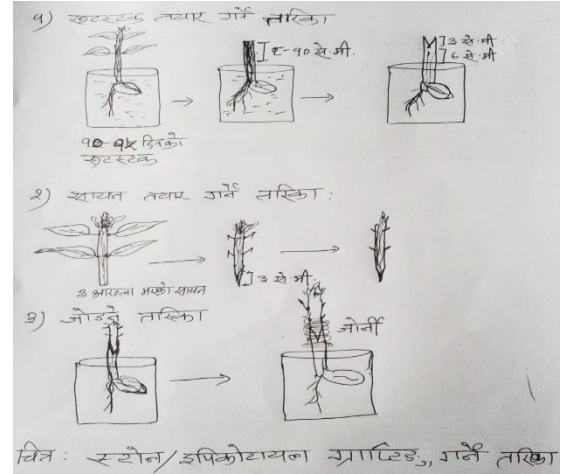 १) रुटस्टक तयार गर्ने तरिका
८-१० से.मी.
३ से.मी
६ से.मी
१०-१५ दिनको
रुटस्टक
२) सायन तयार गर्ने तरिका:
३ से.मी.
३ आँख्ला भएको सायन
३) जोड्ने तरिका
जोर्नी
चित्र: स्टोन/इपिकोटायल ग्राफ्टिङ्ग गर्ने तरिका